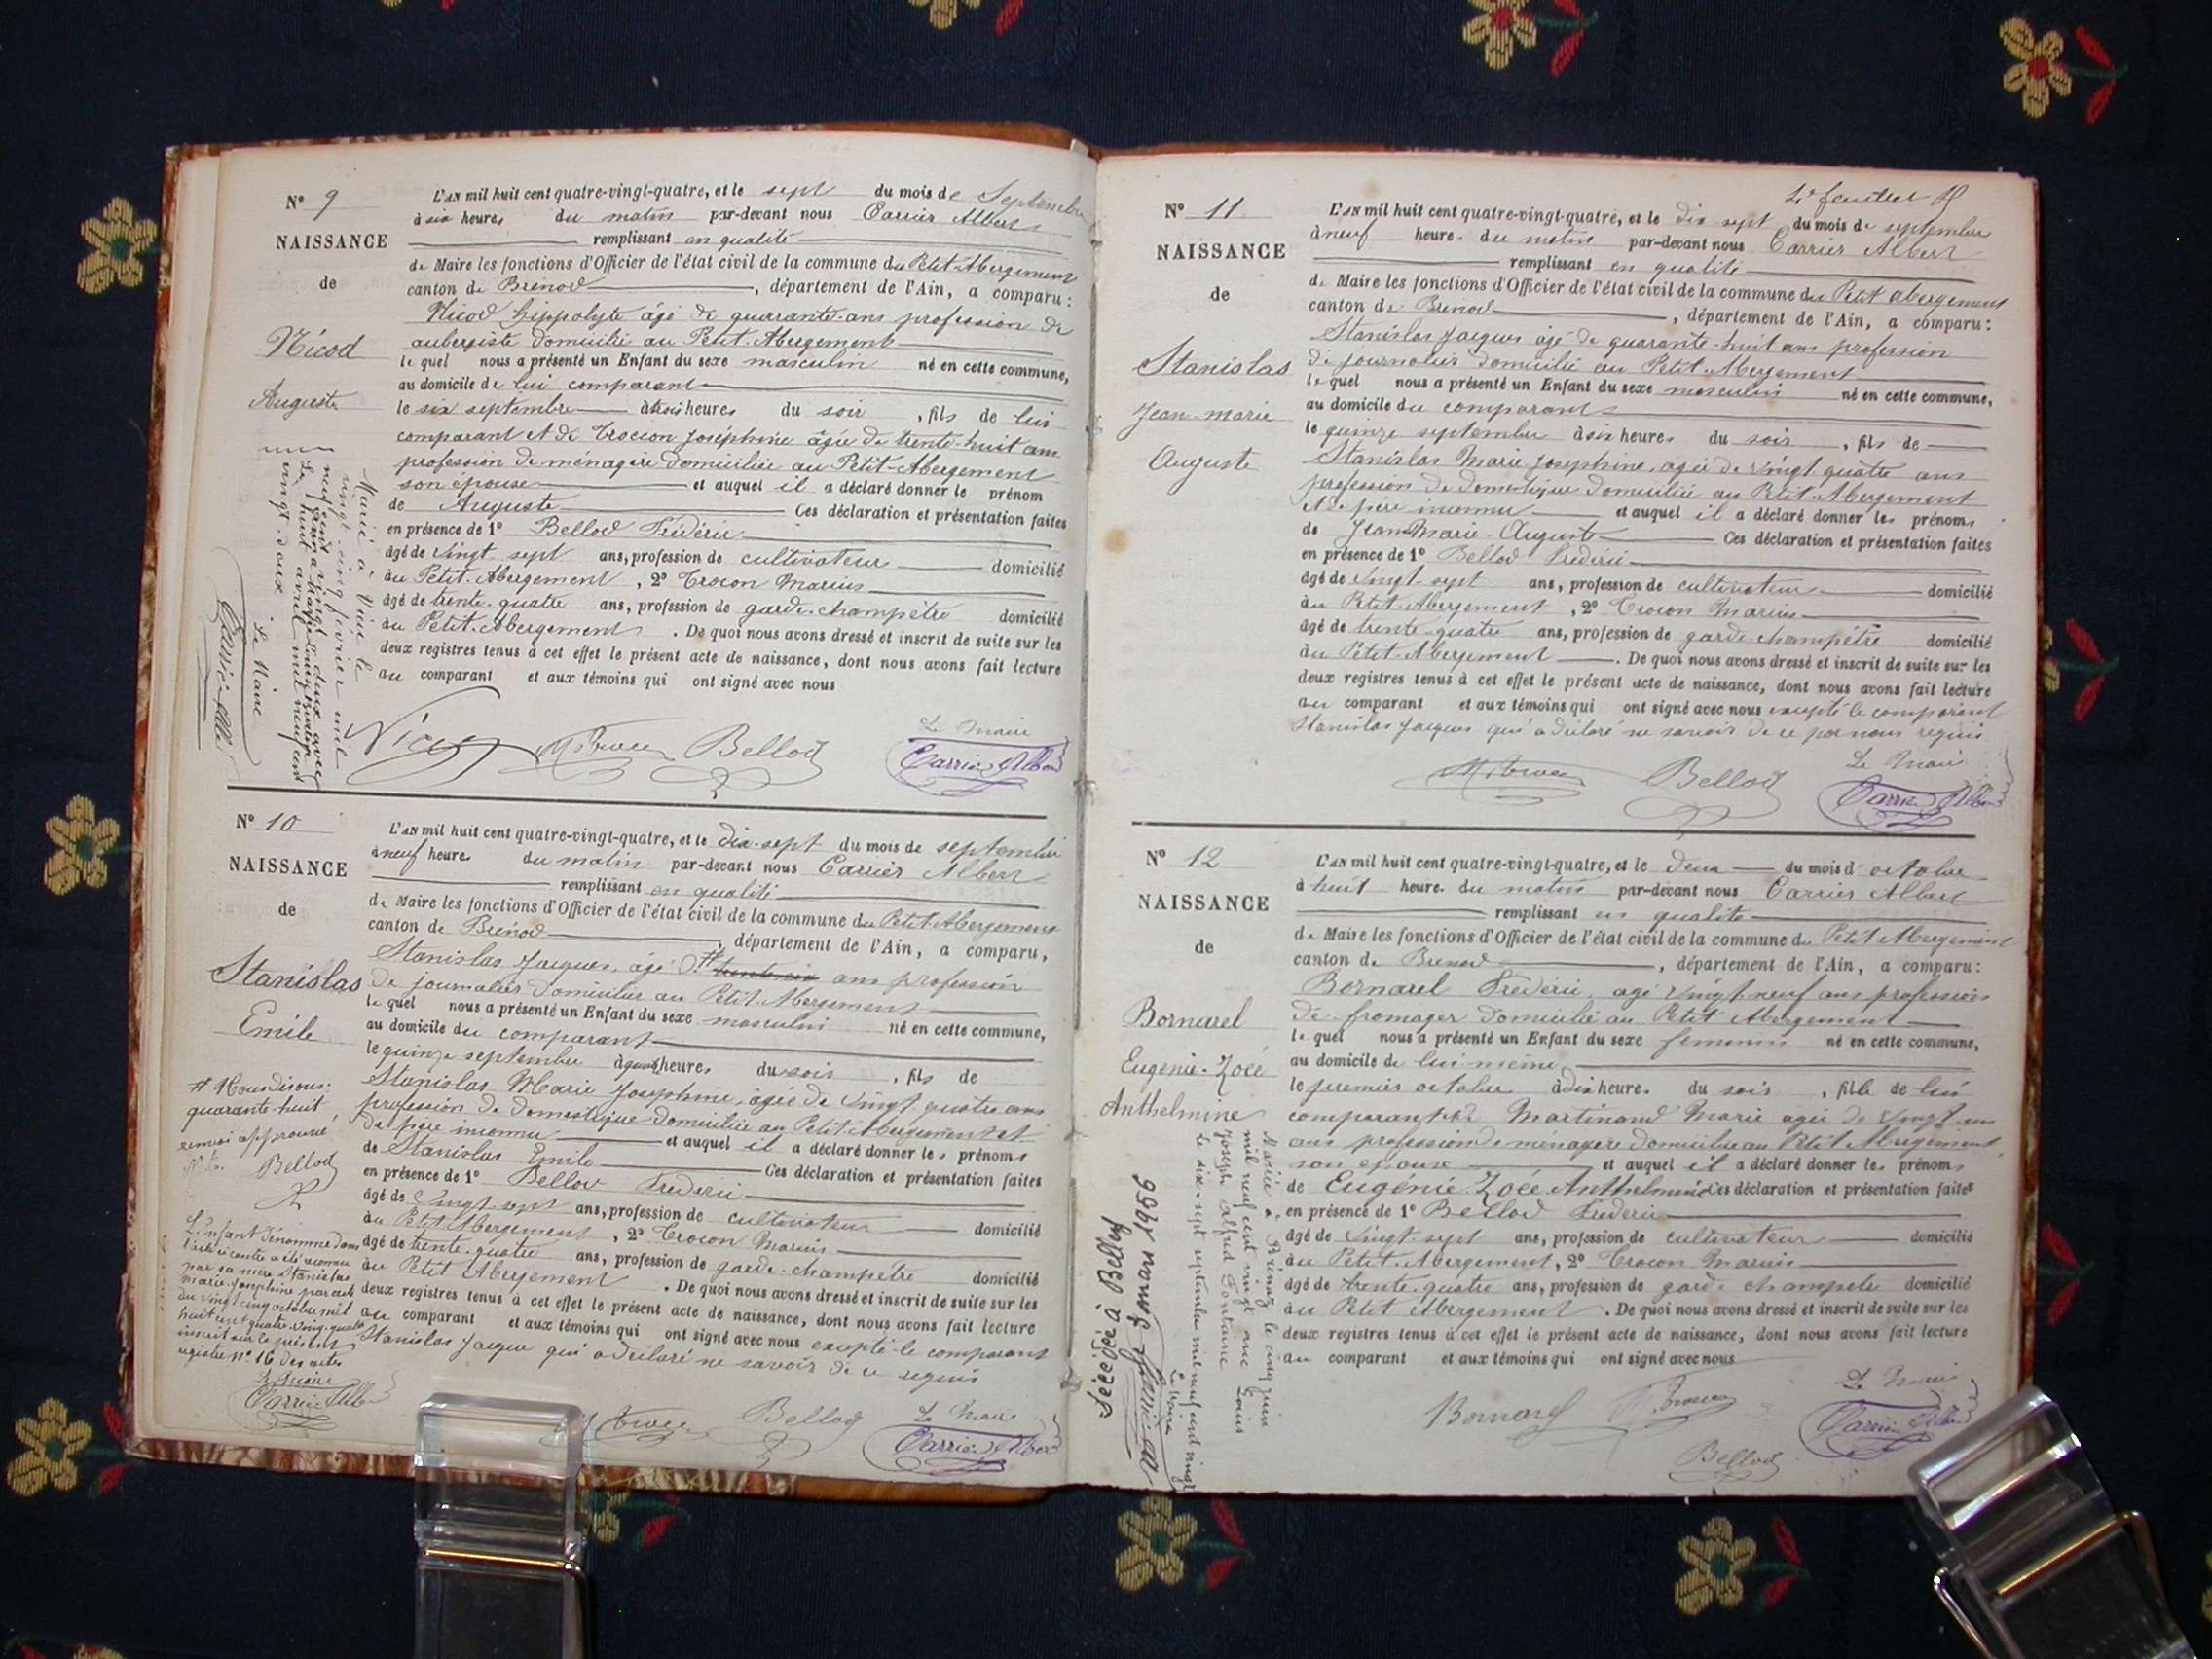 N° 9
NAISSANCE
de
Nicod
Auguste
L'AN mil huit cent quatre-vingt-quatre, et le sept du mois de Septembre
à six heures du matin par-devant nous Carrier Albert
remplissant en qualité
de Maire les fonctions d'Officier de l'état civil de la commune du Petit Abergement
canton de Brénod, département de l'Ain, a comparu:
Nicod Hippolyte âgé de quarante ans profession de
aubergiste domicilié au Petit-Abergement
le quel nous a présenté un Enfant du sexe masculin né en cette commune,
au domicile de lui comparant
le six septembre à trois heures du soir, fils de lui
comparant et de Trocon Joséphine âgée de trente-huit ans
profession de ménagère domiciliée au Petit-Abergement
son épouse et auquel il a déclaré donner le prénom
de Auguste Ces déclaration et présentation faites
en présence de 1° Bellod Frédéric
âgé de vingt sept ans, profession de cultivateur domicilié
au Petit-Abergement, 2° Trocon Marius
âgé de trente-quatre ans, profession de garde-champêtre domicilié
au Petit-Abergement. De quoi nous avons dressé et inscrit de suite sur les
deux registres tenus à cet effet le présent acte de naissance, dont nous avons fait lecture
au comparant et aux témoins qui ont signé avec nous
Le Maire
Nicod Bellod Carrier Albert
Marié à le
vingt-cinq février mil
neuf cent vingt deux avec
Le huit avril mil neuf cent
vingt-deux
Le Maire
N° 10
NAISSANCE
de
Stanislas
Emile
L'AN mil huit cent quatre-vingt-quatre, et le dix-sept du mois de septembre
à neuf heures du matin par-devant nous Carrier Albert
remplissant en qualité
de Maire les fonctions d'Officier de l'état civil de la commune du Petit Abergement
canton de Brénod, département de l'Ain, a comparu,
Stanislas Jacques, âgé de # trente-six ans profession
de journalier domicilié au Petit-Abergement
le quel nous a présenté un Enfant du sexe masculin né en cette commune,
au domicile du comparant
le quinze septembre à heures du soir, fils de
Stanislas Marie Joséphine, âgée de vingt quatre ans
profession de domestique domiciliée au Petit Abergement et
de père inconnu et auquel il a déclaré donner les prénoms
de Stanislas Emile Ces déclaration et présentation faites
en présence de 1° Bellod Frédéric
âgé de vingt-sept ans, profession de cultivateur domicilié
au Petit-Abergement, 2° Trocon Marius
âgé de trente-quatre ans, profession de garde-champêtre domicilié
au Petit Abergement. De quoi nous avons dressé et inscrit de suite sur les
deux registres tenus à cet effet le présent acte de naissance, dont nous avons fait lecture
au comparant et aux témoins qui ont signé avec nous excepté le comparant
Stanislas Jacques qui a déclaré ne savoir de ce requis
Le Maire
Bellod Carrier Albert
# Nous disons:
quarante-huit,
renvoi approuvé
Bellod
L'enfant dénommé dans
l'acte ci contre a été reconnu
par sa mère Stanislas
Marie-Joséphine par acte
du vingt cinq octobre mil
huit cent quatre-vingt-quatre
inscrit sur le présent
registre N° 16 des actes
Le Maire
Carrier Alb
4e feuillet
N° 11
NAISSANCE
de
Stanislas
Jean-marie
Auguste
L'AN mil huit cent quatre-vingt-quatre, et le dix-sept du mois de septembre
à neuf heure. du matin par-devant nous Carrier Albert
remplissant en qualité
de Maire les fonctions d'Officier de l'état civil de la commune du Petit abergement
canton de Brénod, département de l'Ain, a comparu:
Stanislas Jacques âgé de quarante-huit ans profession
de journalier domicilié au Petit-Abergement
le quel nous a présenté un Enfant du sexe masculin né en cette commune,
au domicile du comparant
le quinze septembre à six heures du soir, fils de
Stanislas Marie Joséphine, âgée de vingt-quatre ans
profession de domestique domiciliée au Petit-Abergement
et de père inconnu et auquel il a déclaré donner les prénoms
de Jean Marie-Auguste Ces déclaration et présentation faites
en présence de 1° Bellod Frédéric
âgé de vingt-sept ans, profession de cultivateur domicilié
au Petit-Abergement, 2° Trocon Marius
âgé de trente-quatre ans, profession de garde-champêtre domicilié
au Petit-Abergement. De quoi nous avons dressé et inscrit de suite sur les
deux registres tenus à cet effet le présent acte de naissance, dont nous avons fait lecture
au comparant et aux témoins qui ont signé avec nous excepté le comparant
Stanislas Jacques qui a déclaré ne savoir de ce par nous requis
Le Maire
Bellod Carrier Albert
N° 12
NAISSANCE
de
Bornarel
Eugénie-Zoée
Anthelmine
L'AN mil huit cent quatre-vingt-quatre, et le deux du mois d'octobre
à huit heure. du matin par-devant nous Carrier Albert
remplissant en qualité
de Maire les fonctions d'Officier de l'état civil de la commune du Petit Abergement
canton de Brénod, département de l'Ain, a comparu:
Bornarel Frédéric, âgé vingt-neuf ans profession
de fromager domicilié au Petit Abergement
le quel nous a présenté un Enfant du sexe féminin né en cette commune,
au domicile de lui-même
le premier octobre à dix heure. du soir, fille de lui
comparant et de Martinand Marie âgée de vingt-un
ans profession de ménagère domiciliée au Petit Abergement
son épouse et auquel il a déclaré donner les prénoms
de Eugénie Zoée Anthelmine Ces déclaration et présentation faites
en présence de 1° Bellod Frédéric
âgé de vingt-sept ans, profession de cultivateur domicilié
au Petit-Abergement, 2° Trocon Marius
âgé de trente-quatre ans, profession de garde champetre domicilié
au Petit Abergement. De quoi nous avons dressé et inscrit de suite sur les
deux registres tenus à cet effet le présent acte de naissance, dont nous avons fait lecture
au comparant et aux témoins qui ont signé avec nous
Le Maire
Bornarel Trocon Carrier Albert
Bellod
Mariée à Brénaz le cinq juin
mil neuf cent vingt avec Louis
Joseph Alfred Fontaine
Le dix-sept septembre mil neuf cent vingt
Le Maire
Décédée à Belley
1955